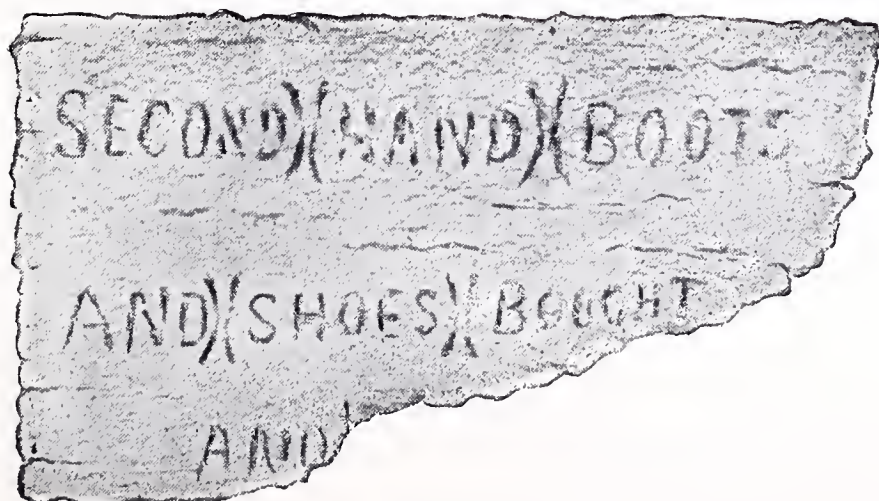 SECOND)(HAND)(BOOTS
AND)(SHOES)(BOUGHT
AND